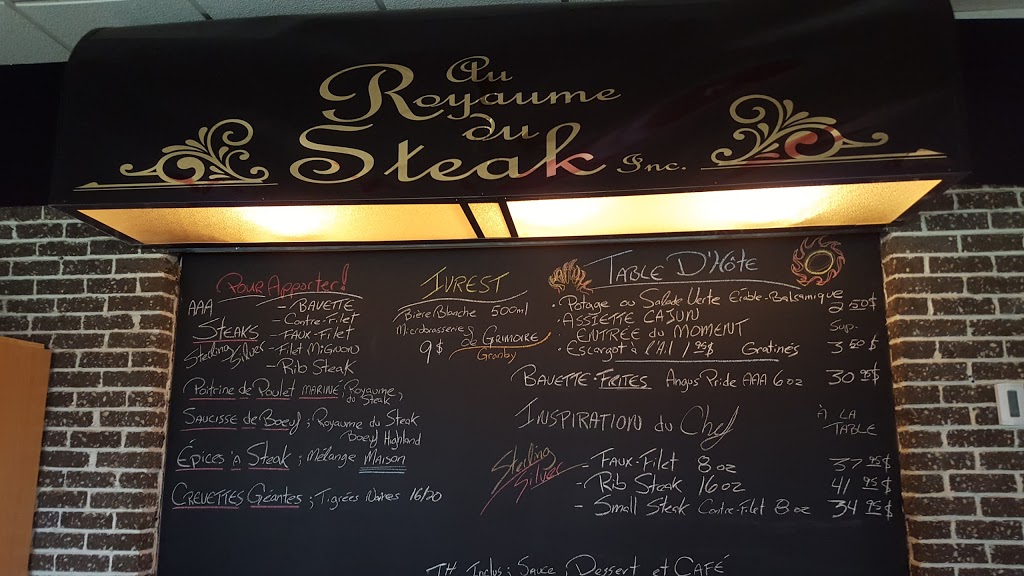 Au
Royaume
du
Steak Inc.
Pour Apporter!
AAA - Bavette
Steaks - Contre-Filet
- Faux-Filet
Sterling Silver - Filet Mignon
- Rib Steak
Poitrine de Poulet mariné; Royaume du Steak;
Saucisse de Boeuf; Royaume du Steak
Boeuf Highland
Épices à Steak; Mélange Maison
Crevettes Géantes; Tigrées Noires 16/20
IVREST
Bière Blanche 500ml
Microbrasserie
de Grimoire
9$ Granby
Table D'Hôte
• Potage ou Salade Verte Érable-Balsamique
• Assiette Cajun 2 50$
• Entrée du Moment Sup.
• Escargot à l'Ail 1 95$ Gratinés 3 50$
Bavette-Frites Angus Pride AAA 6 oz 30 95$
Inspiration du Chef
À LA
TABLE
Sterling
Silver
- Faux-Filet 8 oz 37 95$
- Rib Steak 16 oz 41 95$
- Small Steak Contre-Filet 8 oz 34 95$
TH Inclus; Sauce, Dessert et CAFÉ